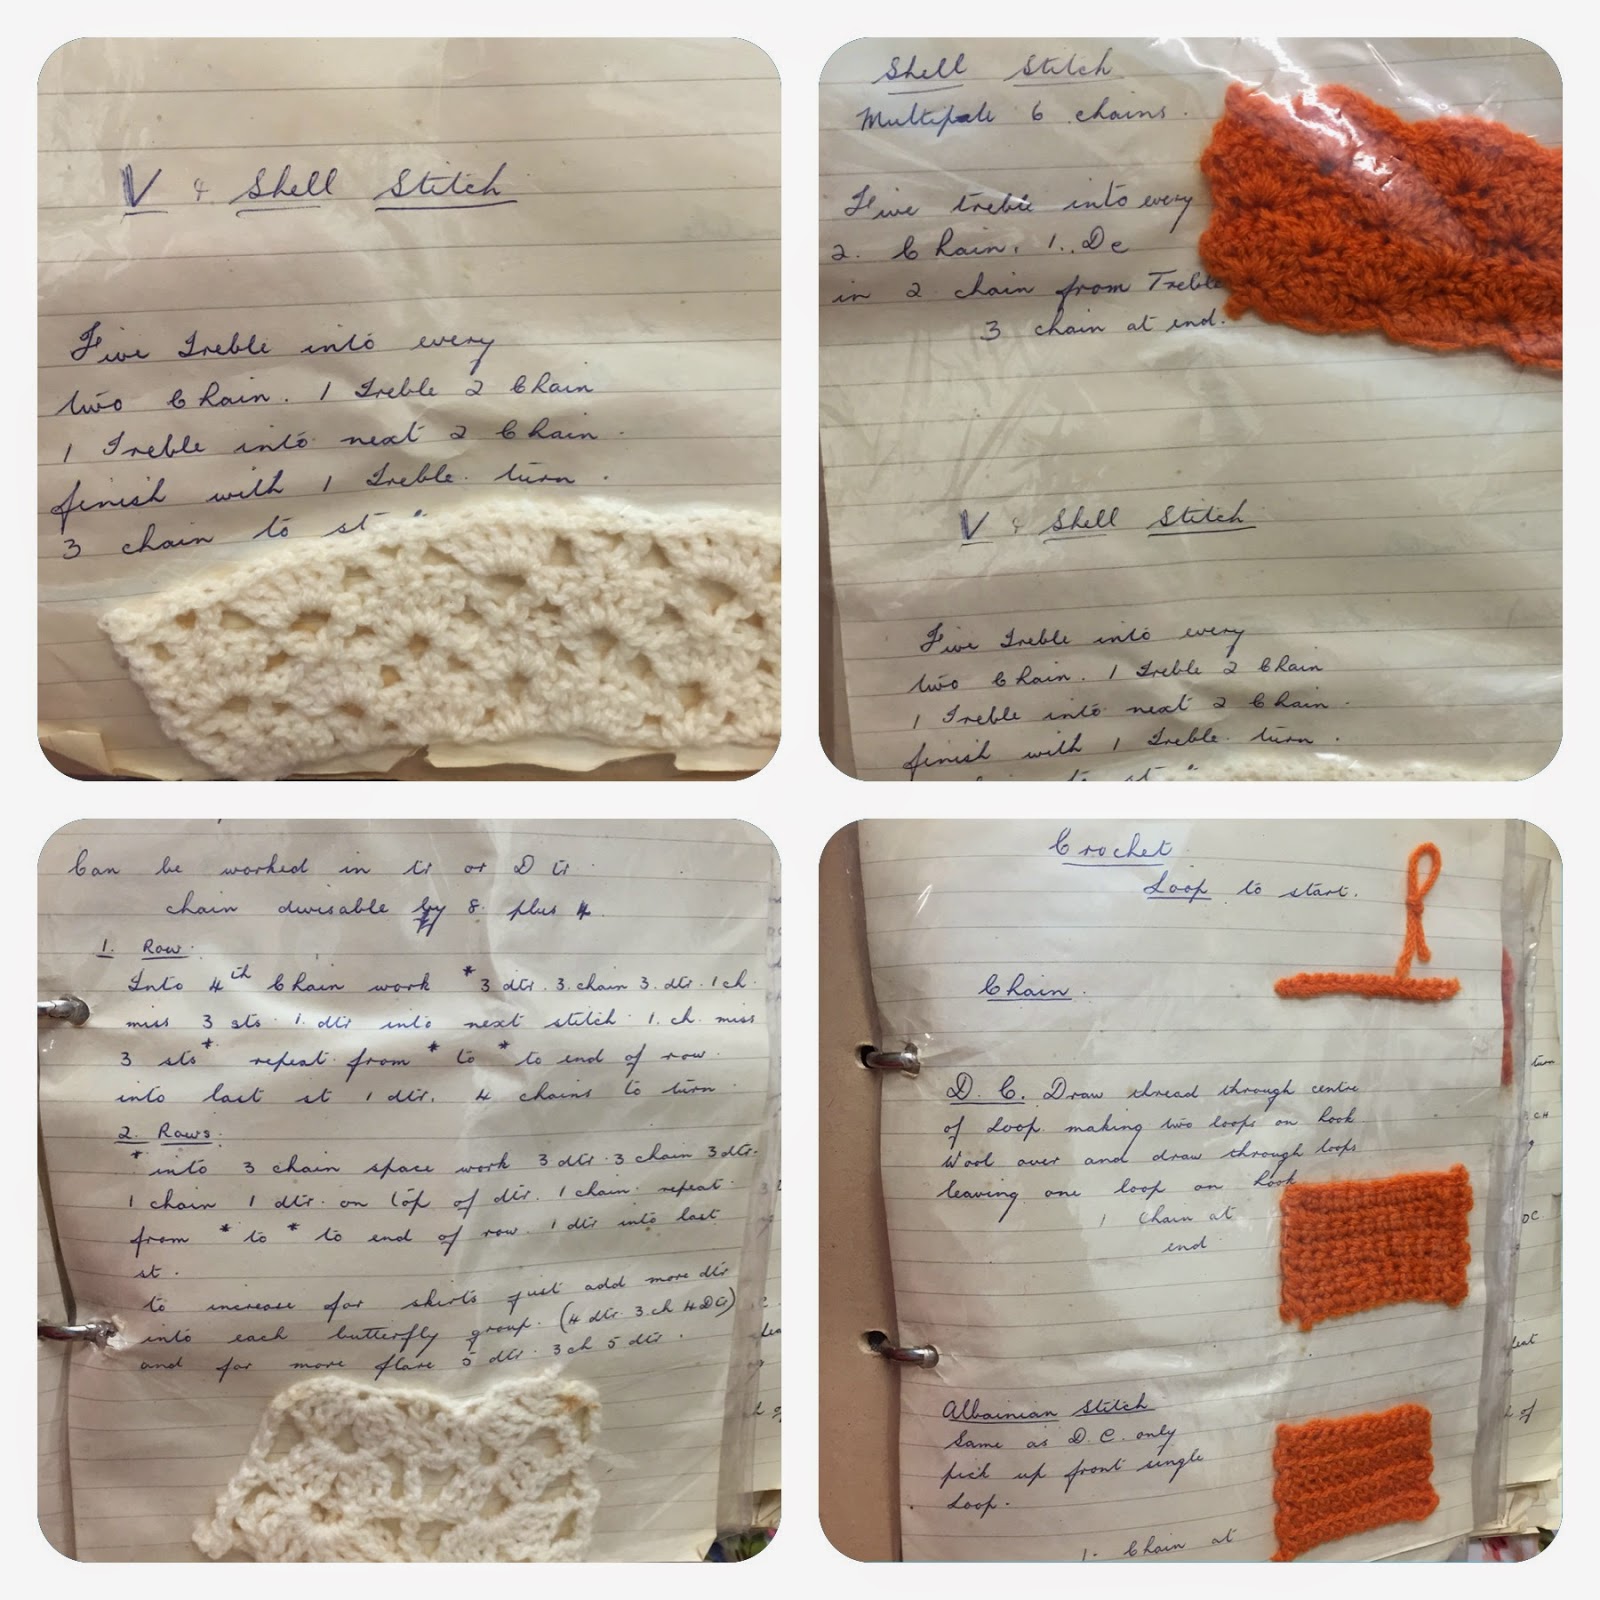 V & Shell Stitch
Five Treble into every
two Chain. 1 Treble 2 Chain
1 Treble into next 2 Chain.
finish with 1 Treble. turn.
3 chain to st
Shell Stitch
Multipale 6 chains.
Five treble into every
2. Chain. 1. Dc
in 2 chain from Treble
3 chain at end.
V & Shell Stitch
Five Treble into every
two Chain. 1 Treble 2 Chain
1 Treble into next 2 Chain.
finish with 1 Treble. turn.
to st
Can be worked in tr or D tr.
chain divisable by 8 plus 4.
1. Row.
Into 4th Chain work * 3 dtr. 3. chain 3. dtr. 1 ch.
miss 3 sts 1. dtr into next stitch 1. ch. miss
3 sts * repeat from * to * to end of row.
into last st 1 dtr. 4 chains to turn
2. Rows.
* into 3 chain space work 3 dtr. 3 chain 3 dtr.
1 chain 1 dtr. on top of dtr. 1 chain. repeat
from * to * to end of row. 1 dtr into last
st.
to increase for skirts just add more dtr
into each butterfly group. (4 dtr. 3. ch 4 Dtr)
and for more flare 5 dtr. 3 ch 5 dtr.
Crochet
Loop to start.
Chain.
D. C. Draw thread through centre
of Loop making two loops on hook
Wool over and draw through loops
leaving one loop on hook
1 Chain at
end
Albainian Stitch
Same as D.C. only
pick up front single
Loop.
1. Chain at
turn
CH
DC
of